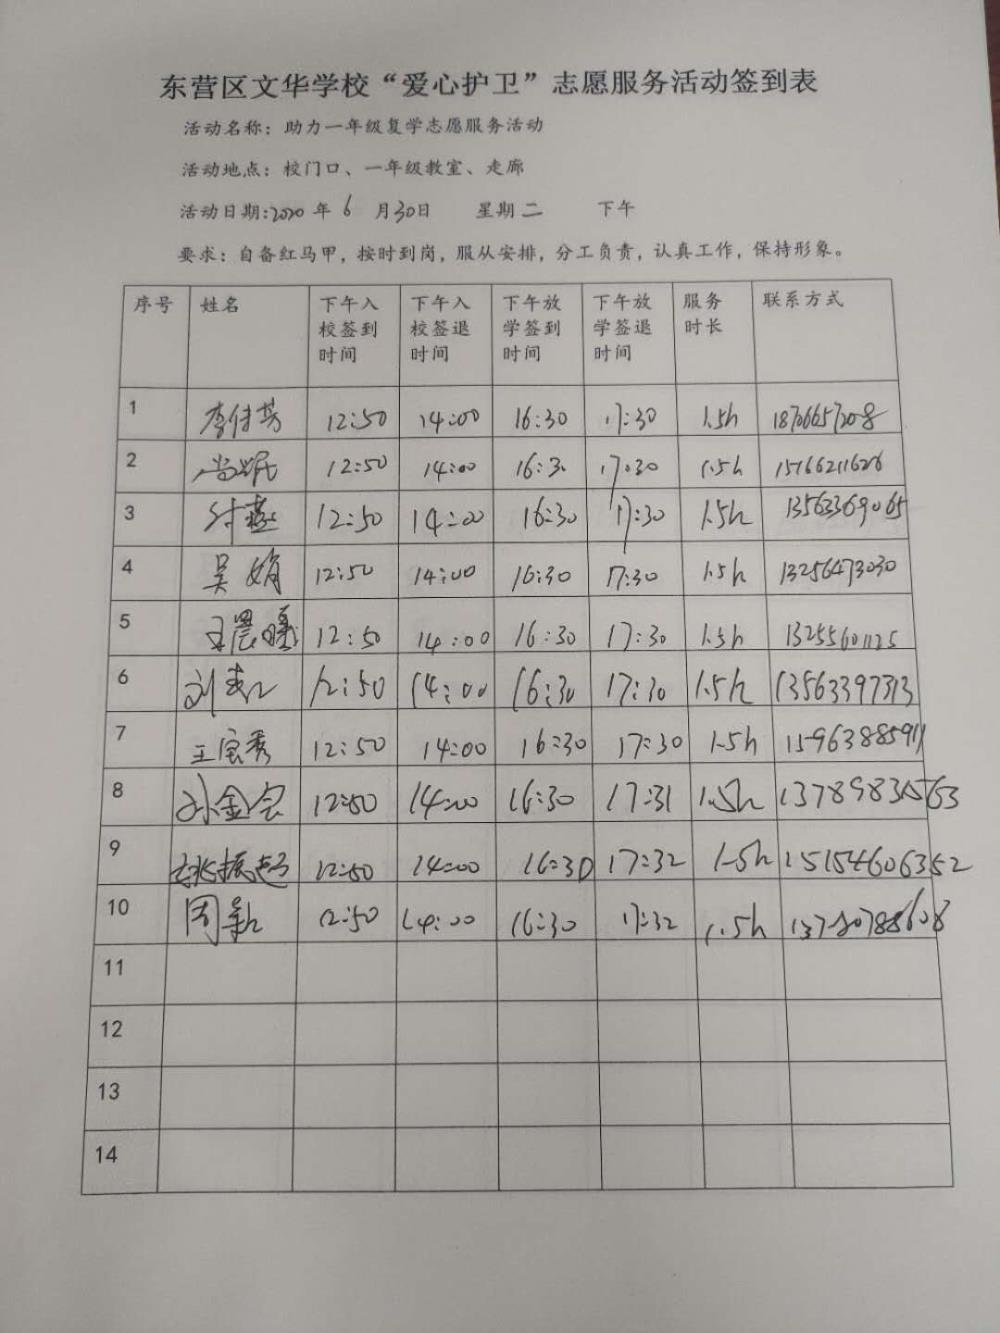 东营区文华学校“爱心护卫”志愿服务活动签到表
活动名称：助力一年级复学志愿服务活动
活动地点：校门口、一年级教室、走廊
活动日期:2020 年 6 月30日 星期 二 下午
要求：自备红马甲，按时到岗，服从安排，分工负责，认真工作，保持形象。
序号 姓名 下午入校签到时间 下午入校签退时间 下午放学签到时间 下午放学签退时间 服务时长 联系方式
1 12:50 14:00 16:30 17:30 1.5h 18706657208
2 12:50 14:00 16:30 17:30 1.5h 15166211626
3 付燕 12:50 14:00 16:30 17:30 1.5h 13563369065
4 吴娟 12:50 14:00 16:30 17:30 1.5h 13256473030
5 王晨曦 12:50 14:00 16:30 17:30 1.5h 13255601125
6 12:50 14:00 16:30 17:30 1.5h 13563397313
7 王宝秀 12:50 14:00 16:30 17:30 1.5h 15963885911
8 孙金宝 12:50 14:00 16:30 17:31 1.5h 13789835563
9 姚振超 12:50 14:00 16:30 17:32 1.5h 15154606352
10 周 12:50 14:00 16:30 17:32 1.5h
11
12
13
14